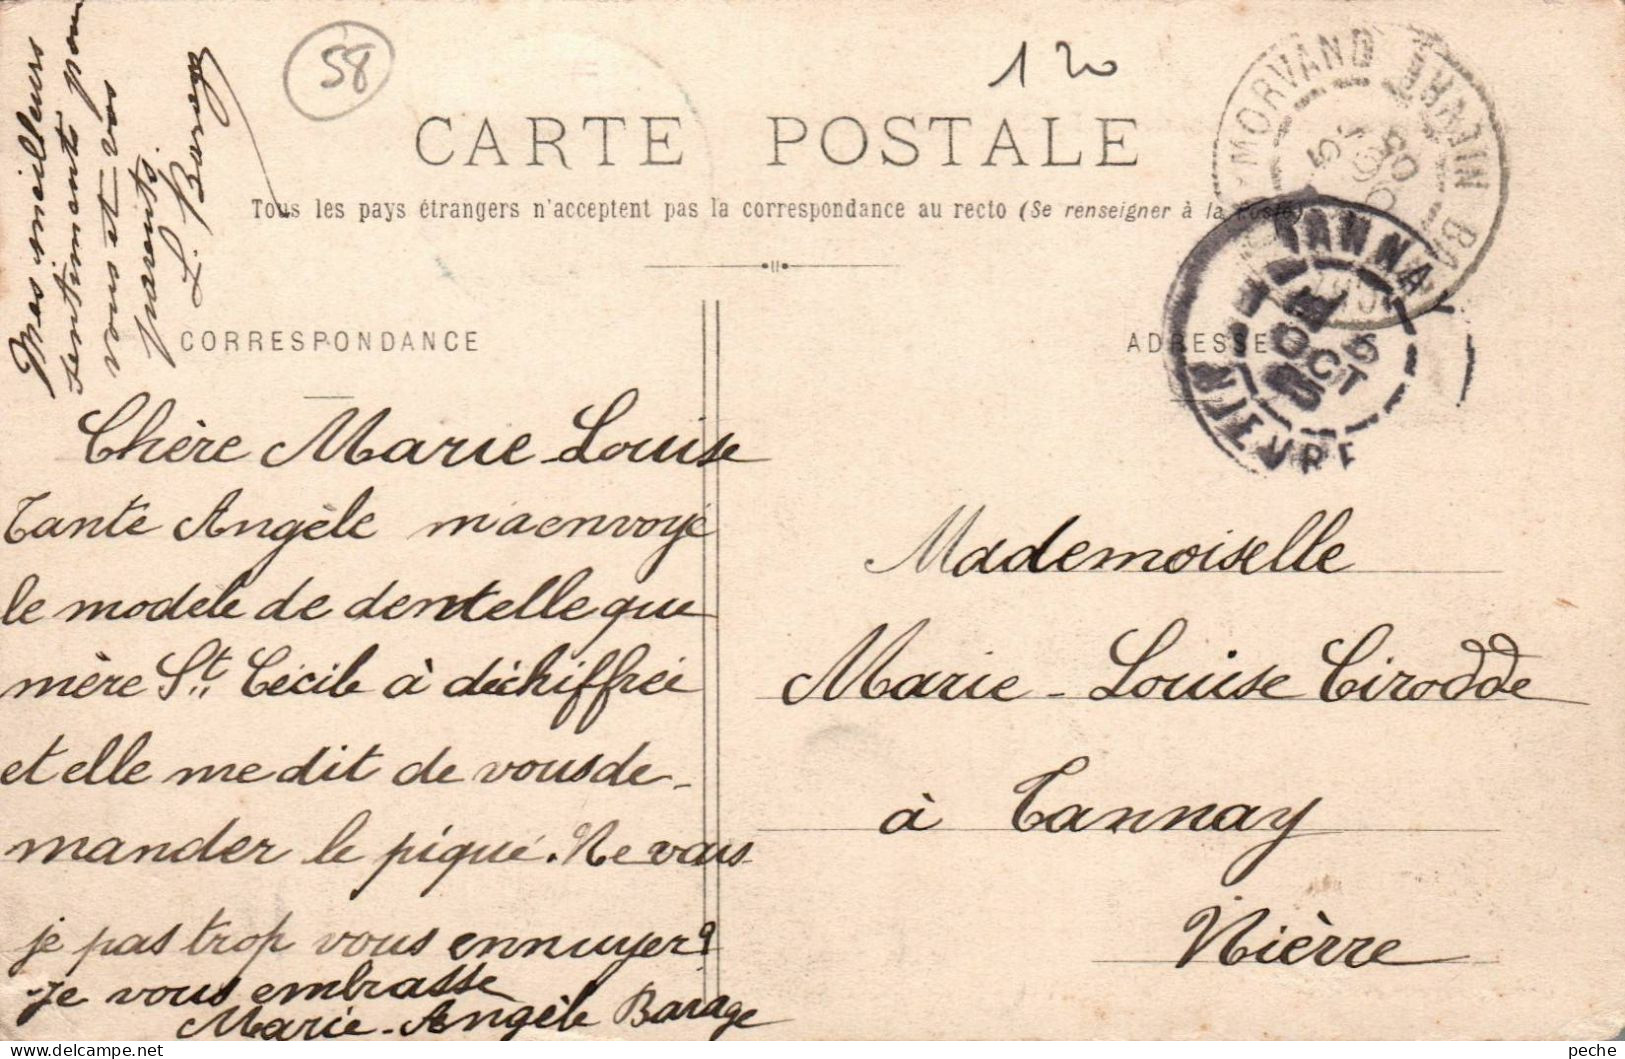 58
120
CARTE POSTALE
Tous les pays étrangers n'acceptent pas la correspondance au recto (Se renseigner à la Poste)
MORVAND
TANNAY
5
OCT
NIEVRE
CORRESPONDANCE
ADRESSE
Mes meilleurs
sentiments pour
vous et vos
parents.
L. Barage
Chère Marie-Louise
Tante Angèle m'a envoyé
le modèle de dentelle que
mère St. Cécile à déchiffrée
et elle me dit de vous de-
mander le piqué. Ne vais
je pas trop vous ennuyer?
Je vous embrasse
Marie-Angèle Barage
Mademoiselle
Marie-Louise Cirodde
à Tannay
Nièvre
peche